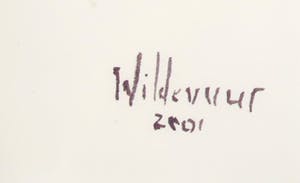 Wildevuur
2001